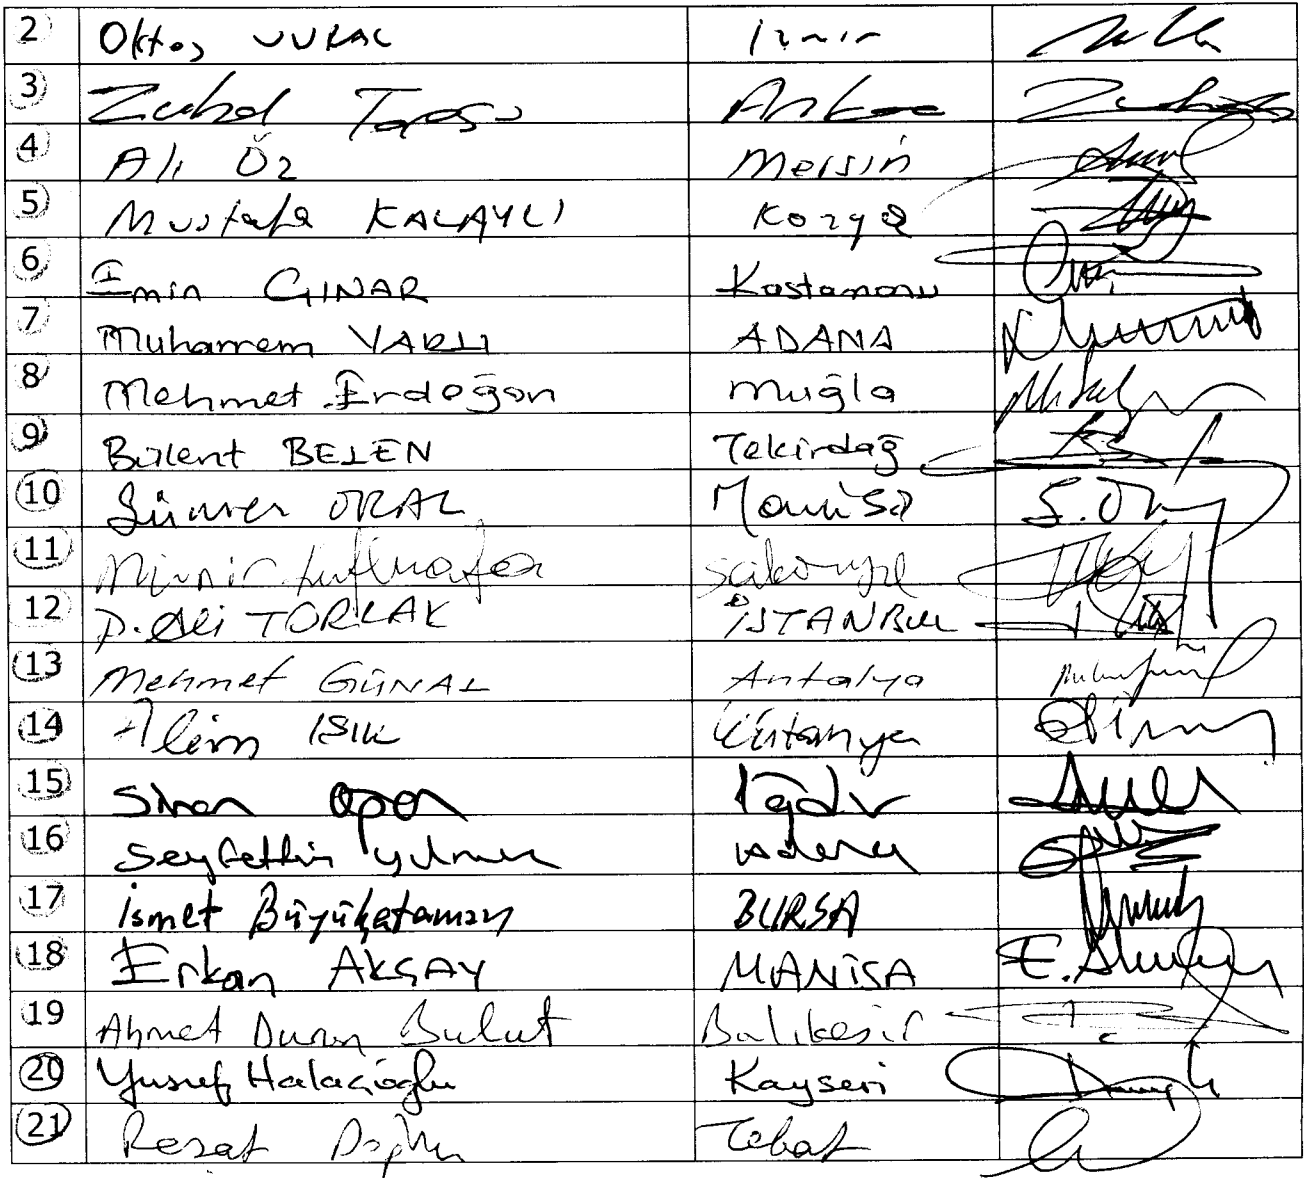 2 Oktay VURAL İzmir
3 Zuhal Topcu Ankara
4 Ali Öz Mersin
5 Mustafa KALAYCI Konya
6 Emin ÇINAR Kastamonu
7 Muharrem VARLI ADANA
8 Mehmet Erdoğan Muğla
9 Bülent BELEN Tekirdağ
10 Sümer ORAL Manisa S.Oral
11 Münir Sakarya
12 D.Ali TORLAK İSTANBUL
13 Mehmet GÜNAL Antalya
14 Alim IŞIK Kütahya
15 Sinan Oğan Iğdır
16 Seyfettin Yılmaz Adana
17 İsmet Büyükataman BURSA
18 Erkan AKÇAY MANİSA
19 Ahmet Duran Bulut Balıkesir
20 Yusuf Halaçoğlu Kayseri
21 Reşat Doğru Tokat